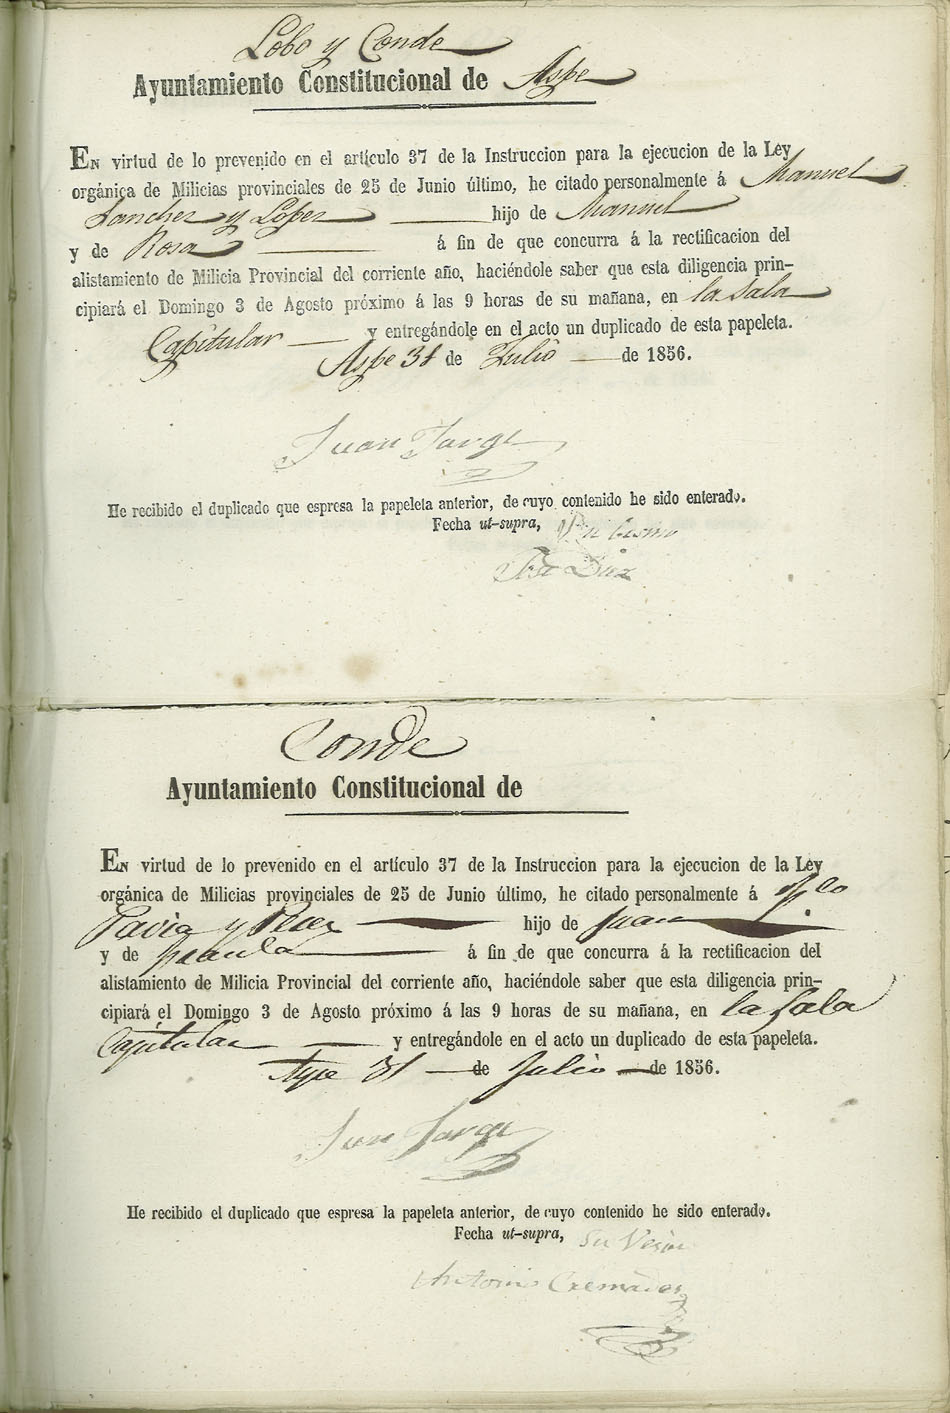 Lobo y Conde
Ayuntamiento Constitucional de Aspe
En virtud de lo prevenido en el artículo 37 de la Instruccion para la ejecucion de la Ley
orgánica de Milicias provinciales de 25 de Junio último, he citado personalmente á Manuel
Sanchez y Lopez hijo de Manuel
y de Rosa á fin de que concurra á la rectificacion del
alistamiento de Milicia Provincial del corriente año, haciéndole saber que esta diligencia prin-
cipiará el Domingo 3 de Agosto próximo á las 9 horas de su mañana, en la Sala
Capitular y entregándole en el acto un duplicado de esta papeleta.
Aspe 31 de Julio de 1856.
Juan Jorge
He recibido el duplicado que espresa la papeleta anterior, de cuyo contenido he sido enterado.
Fecha ut-supra,
Jose Diez
Conde
Ayuntamiento Constitucional de
En virtud de lo prevenido en el artículo 37 de la Instruccion para la ejecucion de la Ley
orgánica de Milicias provinciales de 25 de Junio último, he citado personalmente á
Pavia y Perez hijo de Juan
y de á fin de que concurra á la rectificacion del
alistamiento de Milicia Provincial del corriente año, haciéndole saber que esta diligencia prin-
cipiará el Domingo 3 de Agosto próximo á las 9 horas de su mañana, en la Sala
Capitular y entregándole en el acto un duplicado de esta papeleta.
Aspe 31 de Julio de 1856.
Juan Jorge
He recibido el duplicado que espresa la papeleta anterior, de cuyo contenido he sido enterado.
Fecha ut-supra, Su Vesino
Antonio Cremades